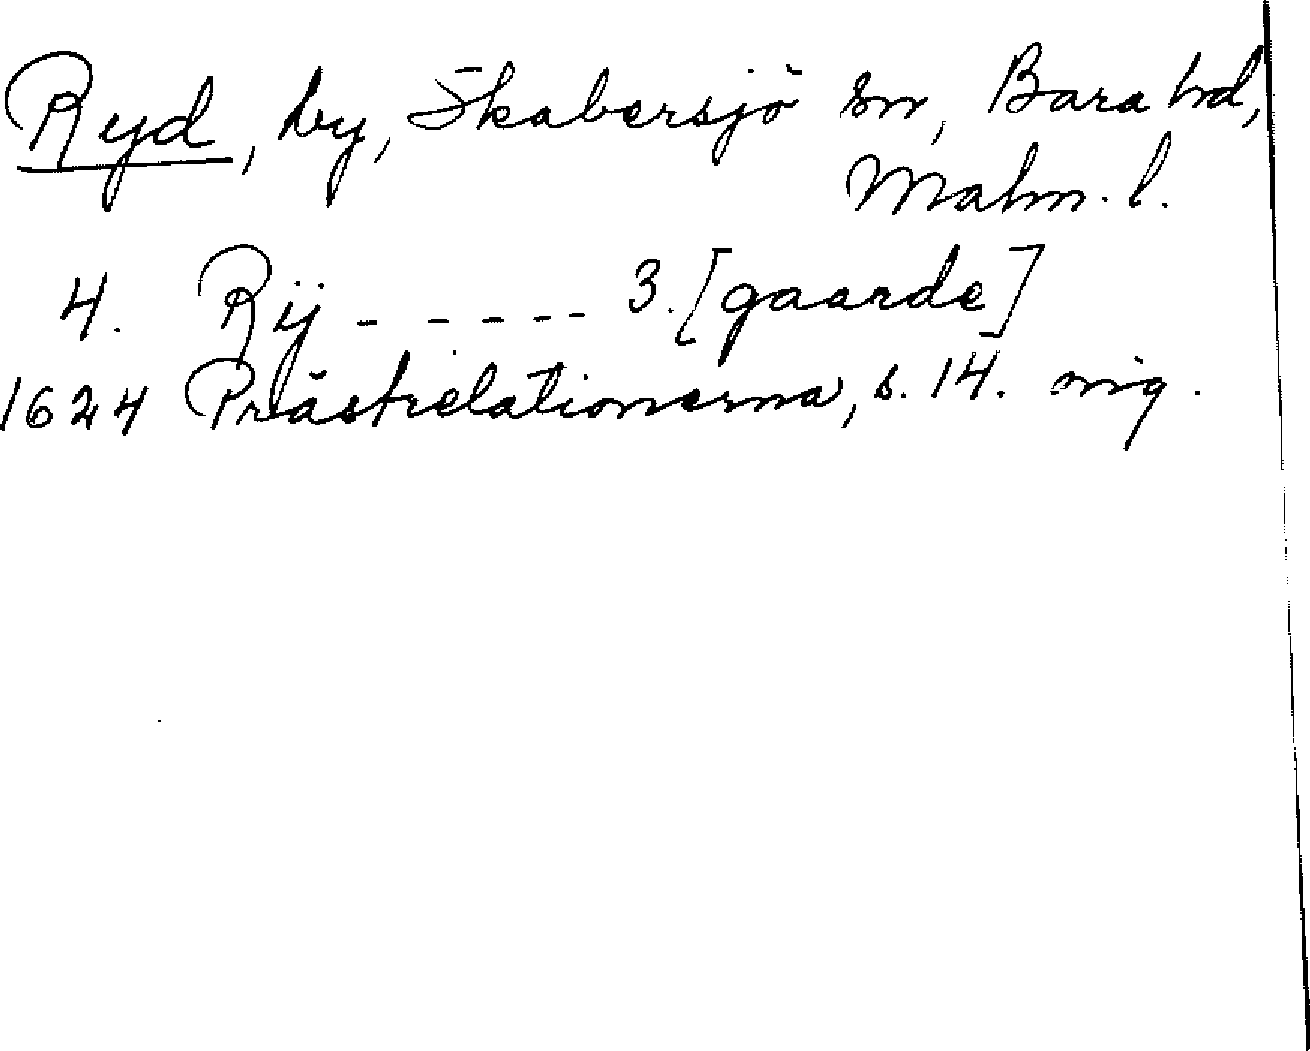 Ryd, by, Skabersjö sn, Bara hd,
Malm. l.
4. Rij - - - - - - 3. [gaarde]
1624 Prästrelationerna, s. 14. mg.